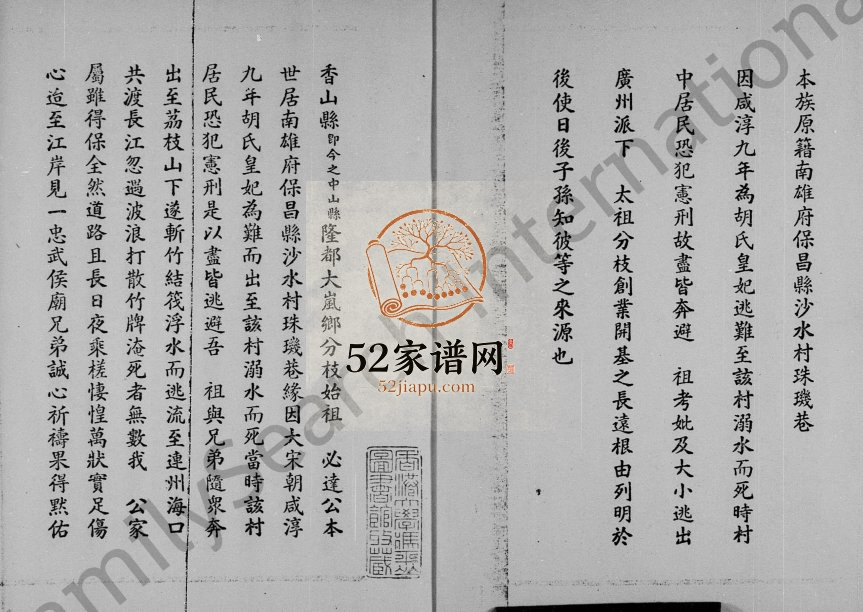 本族原籍南雄府保昌縣沙水村珠璣巷
因咸淳九年為胡氏皇妃逃難至該村溺水而死時村
中居民恐犯憲刑故盡皆奔避 祖考妣及大小逃出
廣州派下 太祖分枝創業開基之長遠根由列明於
後使日後子孫知彼等之來源也
香山縣即今之中山縣隆都大嵐鄉分枝始祖 必達公本
世居南雄府保昌縣沙水村珠璣巷緣因大宋朝咸淳
九年胡氏皇妃為難而出至該村溺水而死當時該村
居民恐犯憲刑是以盡皆逃避吾 祖與兄弟隨眾奔
出至荔枝山下遂斬竹結筏浮水而逃流至連州海口
共渡長江忽遇波浪打散竹牌淹死者無數我 公家
屬雖得保全然道路且長日夜乘槎悽惶萬狀實足傷
心迨至江岸見一忠武侯廟兄弟誠心祈禱果得默佑
52家谱网
52jiapu.com
香港大學馮平山
圖書館收藏
FamilySearch International